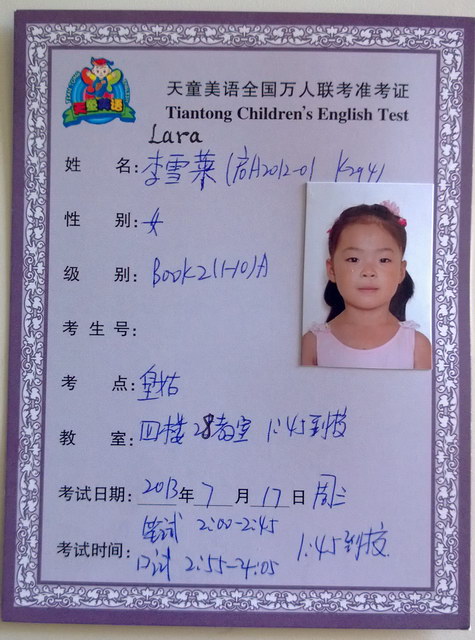 天童美语
天童美语全国万人联考准考证
Tiantong Children's English Test
Lara
姓 名: 李雪莱 (启A2012-01 K294)
性 别: 女
级 别: Book2(1-10)A
考 生 号:
考 点: 皇姑
教 室: 四楼 28教室 1:45到校
考试日期: 2013年 7 月 17 日 周三
考试时间: 笔试 2:00-2:45
口试 2:55-4:05 1:45到校